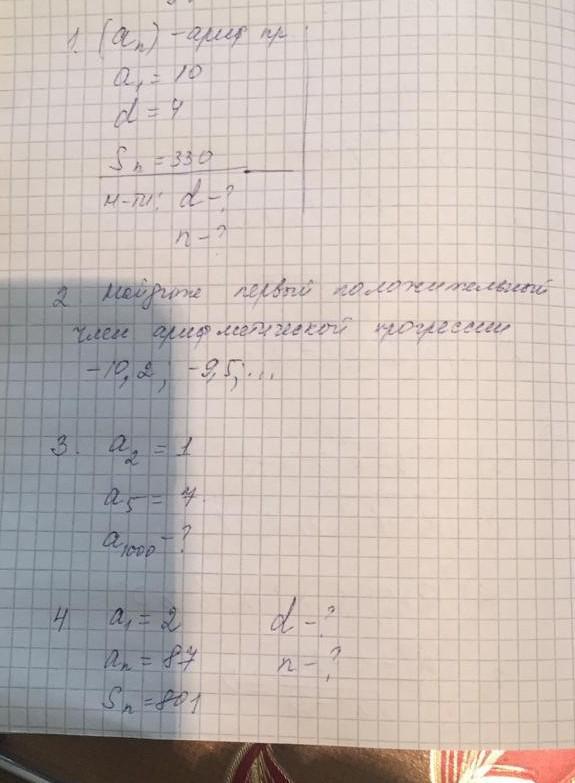 1. (aₙ) - ариф пр.
a₁ = 10
d = 4
Sₙ = 330
н-ти: d - ?
n - ?
2 Найдите первый положительный
член арифметической прогрессии
-10,2; -9,5; ...
3. a₂ = 1
a₅ = 7
a₁₀₀₀ - ?
4 a₁ = 2 d - ?
aₙ = 87 n - ?
Sₙ = 801